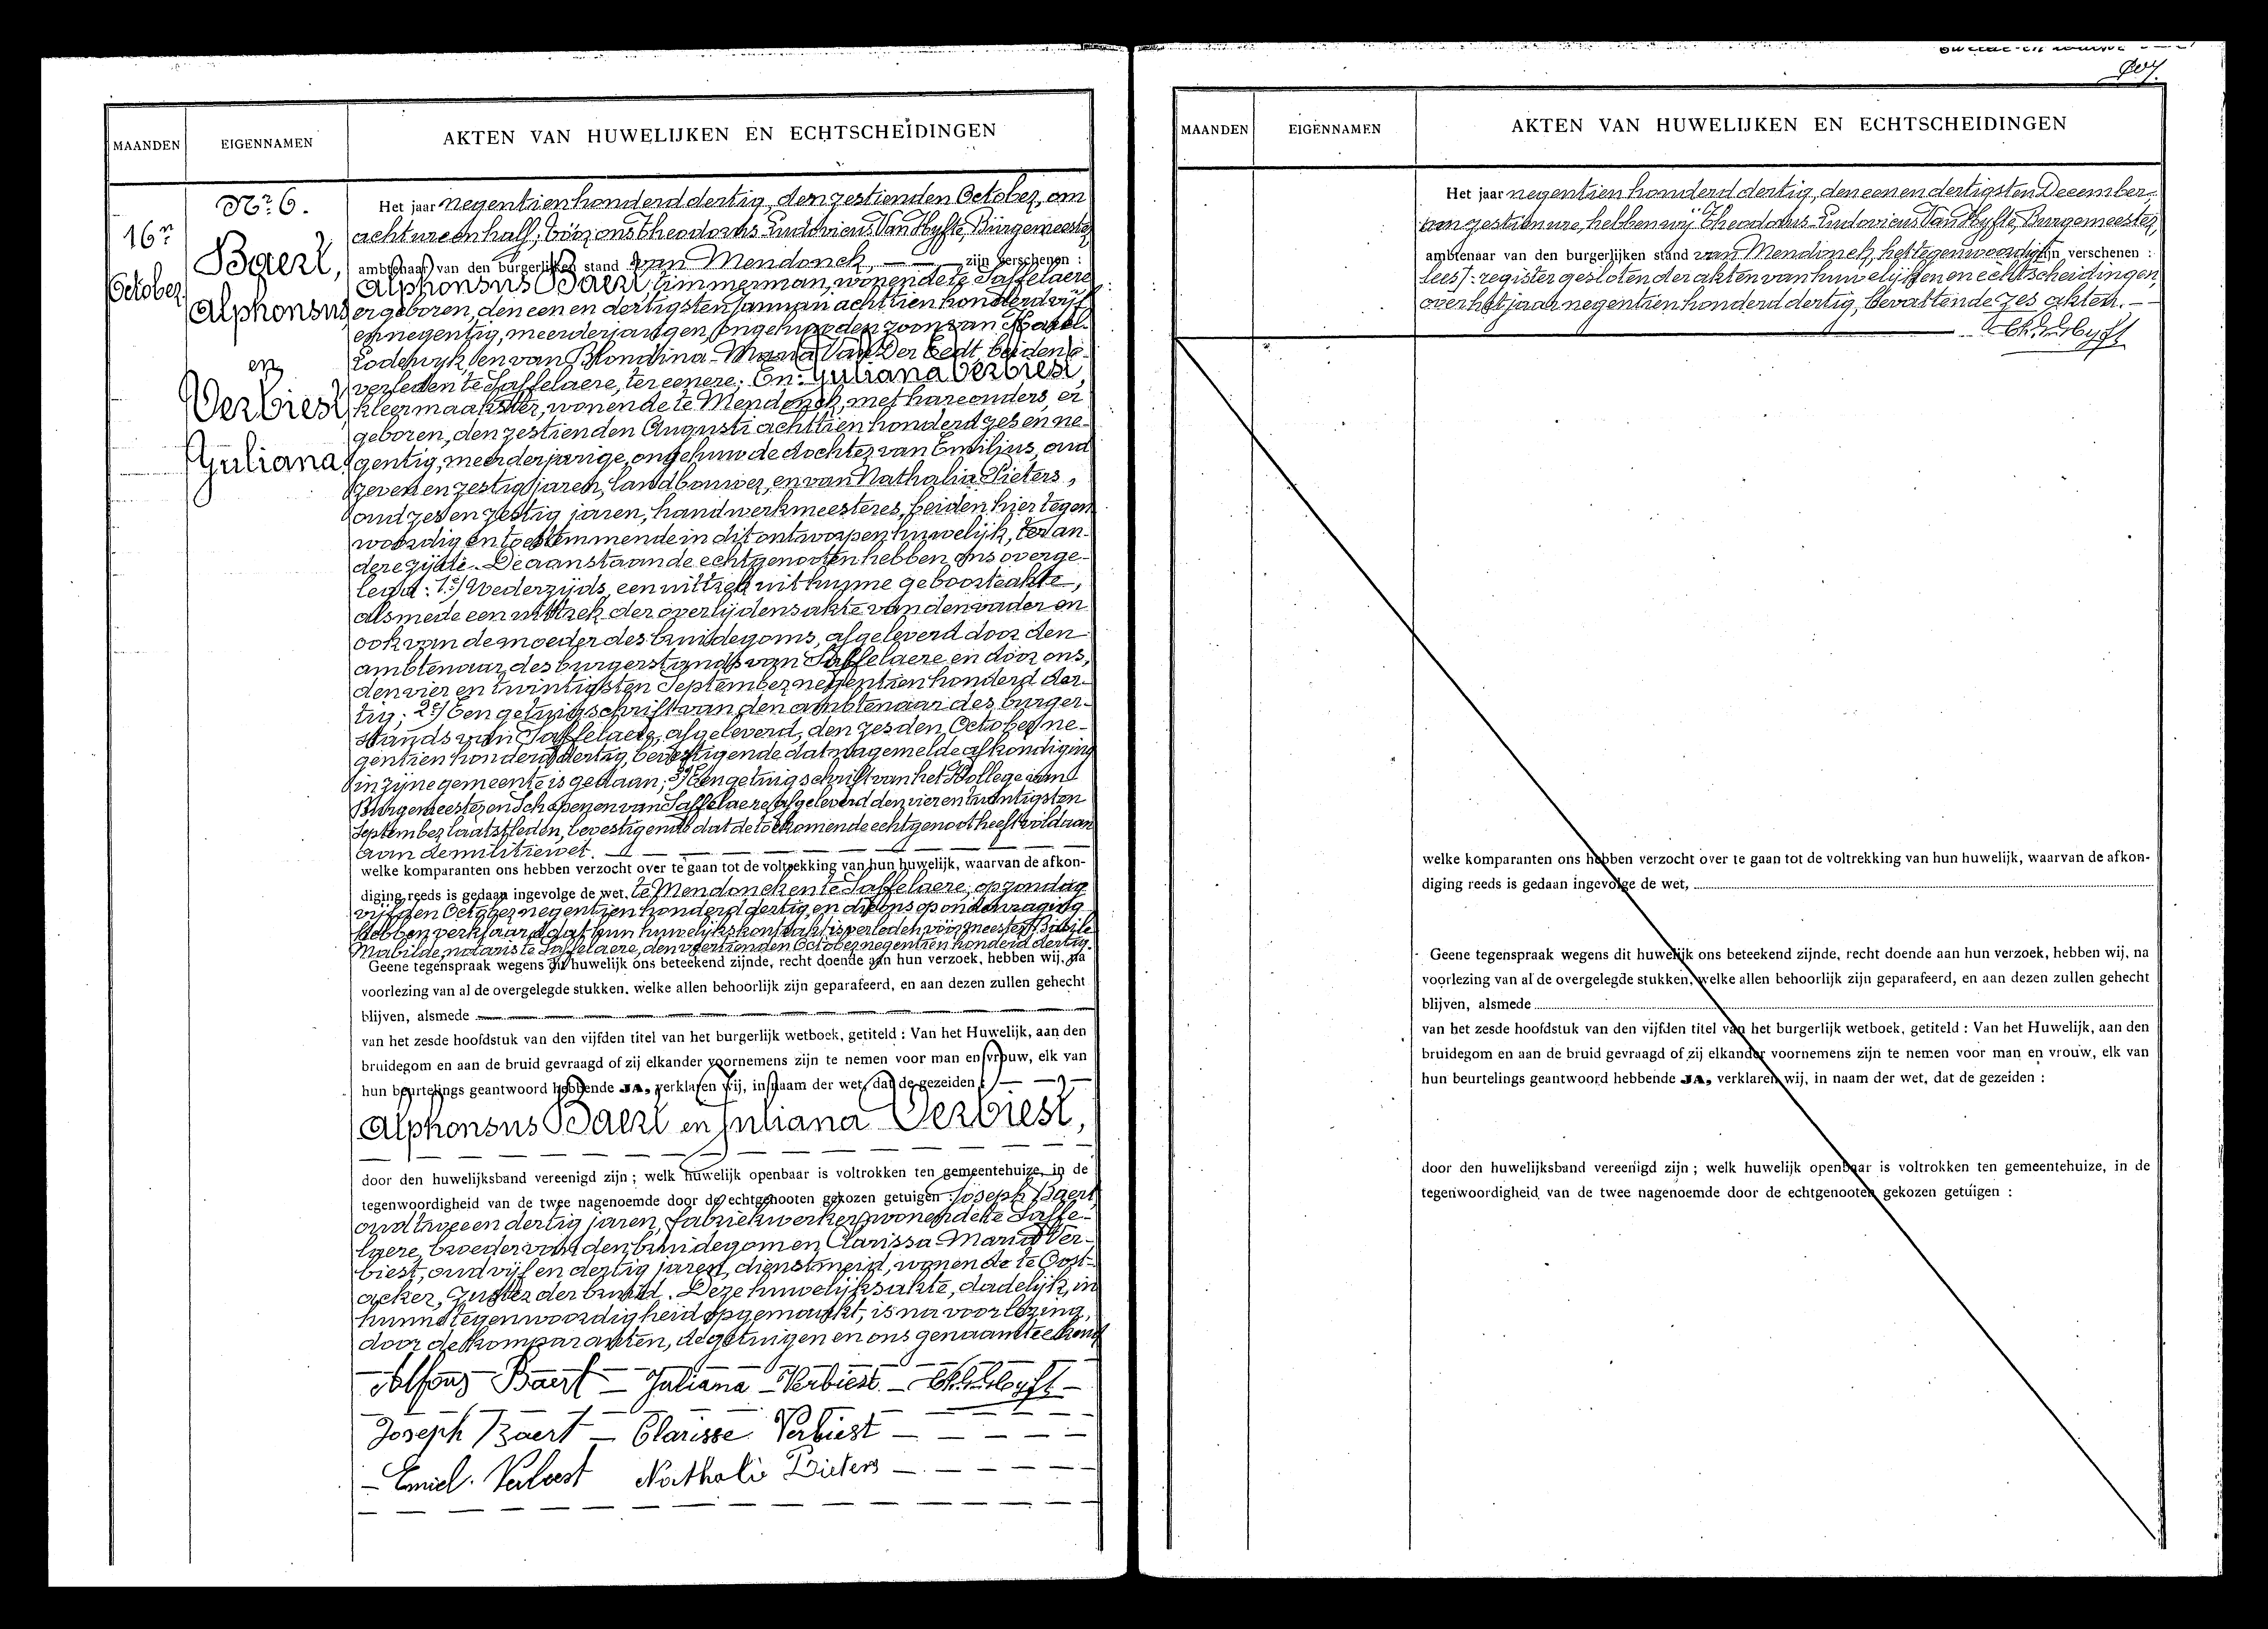 MAANDEN
EIGENNAMEN
AKTEN VAN HUWELIJKEN EN ECHTSCHEIDINGEN
16n
October.
Nr. 6.
Baert,
Alphonsus
en
Verbiest,
Juliana.
Het jaar negentien honderd dertig, den zestienden October, om
acht ure en half, vóór ons Theodorus Ludovicus Van Hyfte, Burgemeester
ambtenaar van den burgerlijken stand van Mendonck, zijn verschenen :
Alphonsus Baert, timmerman, wonende te Saffelaere
er geboren, den een en dertigsten Januari achttien honderd vijf
en negentig, meerderjarigen, ongehuwden zoon van Karel-
Lodewyk, en van Blondina-Maria Van Der Eedt, beiden o-
verleden te Saffelaere, ter eenere; En: Juliana Verbiest,
kleermaakster, wonende te Mendonck, met hare ouders, er
geboren, den zestienden Augusti achttien honderd zes en ne-
gentig, meerderjarige, ongehuwde dochter van Emilius, oud
zeven en zestig jaren, landbouwer, en van Nathalia Pieters,
oud zes en zestig jaren, handwerkmeesteres, beiden hier tegen
woordig en toestemmende in dit ontworpen huwelijk, ter an-
dere zijde. De aanstaande echtgenooten hebben ons overge-
legd: 1e) Wederzijds, een uittrek uit hunne geboorteakte,
alsmede een uittrek der overlijdensakte van den vader en
ook van de moeder des bruidegoms, afgeleverd door den
ambtenaar des burgerstands van Saffelaere en door ons,
den vier en twintigsten September negentien honderd der-
tig; 2e) Een getuigschrift van den ambtenaar des burger-
stands van Saffelaere, afgeleverd, den zesden October ne-
gentien honderd dertig, bevestigende dat nagemelde afkondiging
in zijne gemeente is gedaan; 3e) Een getuigschrift van het Kollege van
Burgemeester en Schepenen van Saffelaere, afgeleverd den vier en twintigsten
September laatstleden, bevestigende dat de toekomende echtgenoot heeft voldaan
aan de militiewet.
welke komparanten ons hebben verzocht over te gaan tot de voltrekking van hun huwelijk, waarvan de afkon-
diging reeds is gedaan ingevolge de wet, te Mendonck en te Saffelaere, op zondag
vijfden October negentien honderd dertig, en die ons op ondervraging
hebben verklaard dat hun huwelijkskontrakt is verleden vóór meester Basile
Mabilde, notaris te Saffelaere, den veertienden October negentien honderd dertig.
Geene tegenspraak wegens dit huwelijk ons beteekend zijnde, recht doende aan hun verzoek, hebben wij, na
voorlezing van al de overgelegde stukken, welke allen behoorlijk zijn geparafeerd, en aan dezen zullen gehecht
blijven, alsmede
van het zesde hoofdstuk van den vijfden titel van het burgerlijk wetboek, getiteld : Van het Huwelijk, aan den
bruidegom en aan de bruid gevraagd of zij elkander voornemens zijn te nemen voor man en vrouw, elk van
hun beurtelings geantwoord hebbende JA, verklaren wij, in naam der wet, dat de gezeiden :
Alphonsus Baert en Juliana Verbiest,
door den huwelijksband vereenigd zijn ; welk huwelijk openbaar is voltrokken ten gemeentehuize, in de
tegenwoordigheid van de twee nagenoemde door de echtgenooten gekozen getuigen : Joseph Baert,
oud twee en dertig jaren, fabriekwerker, wonende te Saffe-
laere, broeder van den bruidegom en Clarissa-Maria Ver-
biest, oud vijf en dertig jaren, dienstmeid, wonende te Oost-
acker, zuster der bruid. Deze huwelijksakte, dadelijk, in
hunne tegenwoordigheid opgemaakt, is na voorlezing,
door de komparanten, de getuigen en ons genaamteekend
Alfons Baert Juliana Verbiest
Joseph Baert Clarisse Verbiest
Emiel Verbiest Nathalie Pieters
MAANDEN
EIGENNAMEN
AKTEN VAN HUWELIJKEN EN ECHTSCHEIDINGEN
Het jaar negentien honderd dertig, den een en dertigsten December,
ten zestien ure, hebben wij Theodorus-Ludovicus Van Hyfte, Burgemeester,
ambtenaar van den burgerlijken stand van Mendonck, het tegenwoordig zijn verschenen :
lees/: register gesloten der akten van huwelijken en echtscheidingen,
over het jaar negentien honderd dertig, bevattende zes akten.
welke komparanten ons hebben verzocht over te gaan tot de voltrekking van hun huwelijk, waarvan de afkon-
diging reeds is gedaan ingevolge de wet,
Geene tegenspraak wegens dit huwelijk ons beteekend zijnde, recht doende aan hun verzoek, hebben wij, na
voorlezing van al de overgelegde stukken, welke allen behoorlijk zijn geparafeerd, en aan dezen zullen gehecht
blijven, alsmede
van het zesde hoofdstuk van den vijfden titel van het burgerlijk wetboek, getiteld : Van het Huwelijk, aan den
bruidegom en aan de bruid gevraagd of zij elkander voornemens zijn te nemen voor man en vrouw, elk van
hun beurtelings geantwoord hebbende JA, verklaren wij, in naam der wet, dat de gezeiden :
door den huwelijksband vereenigd zijn ; welk huwelijk openbaar is voltrokken ten gemeentehuize, in de
tegenwoordigheid van de twee nagenoemde door de echtgenooten gekozen getuigen :